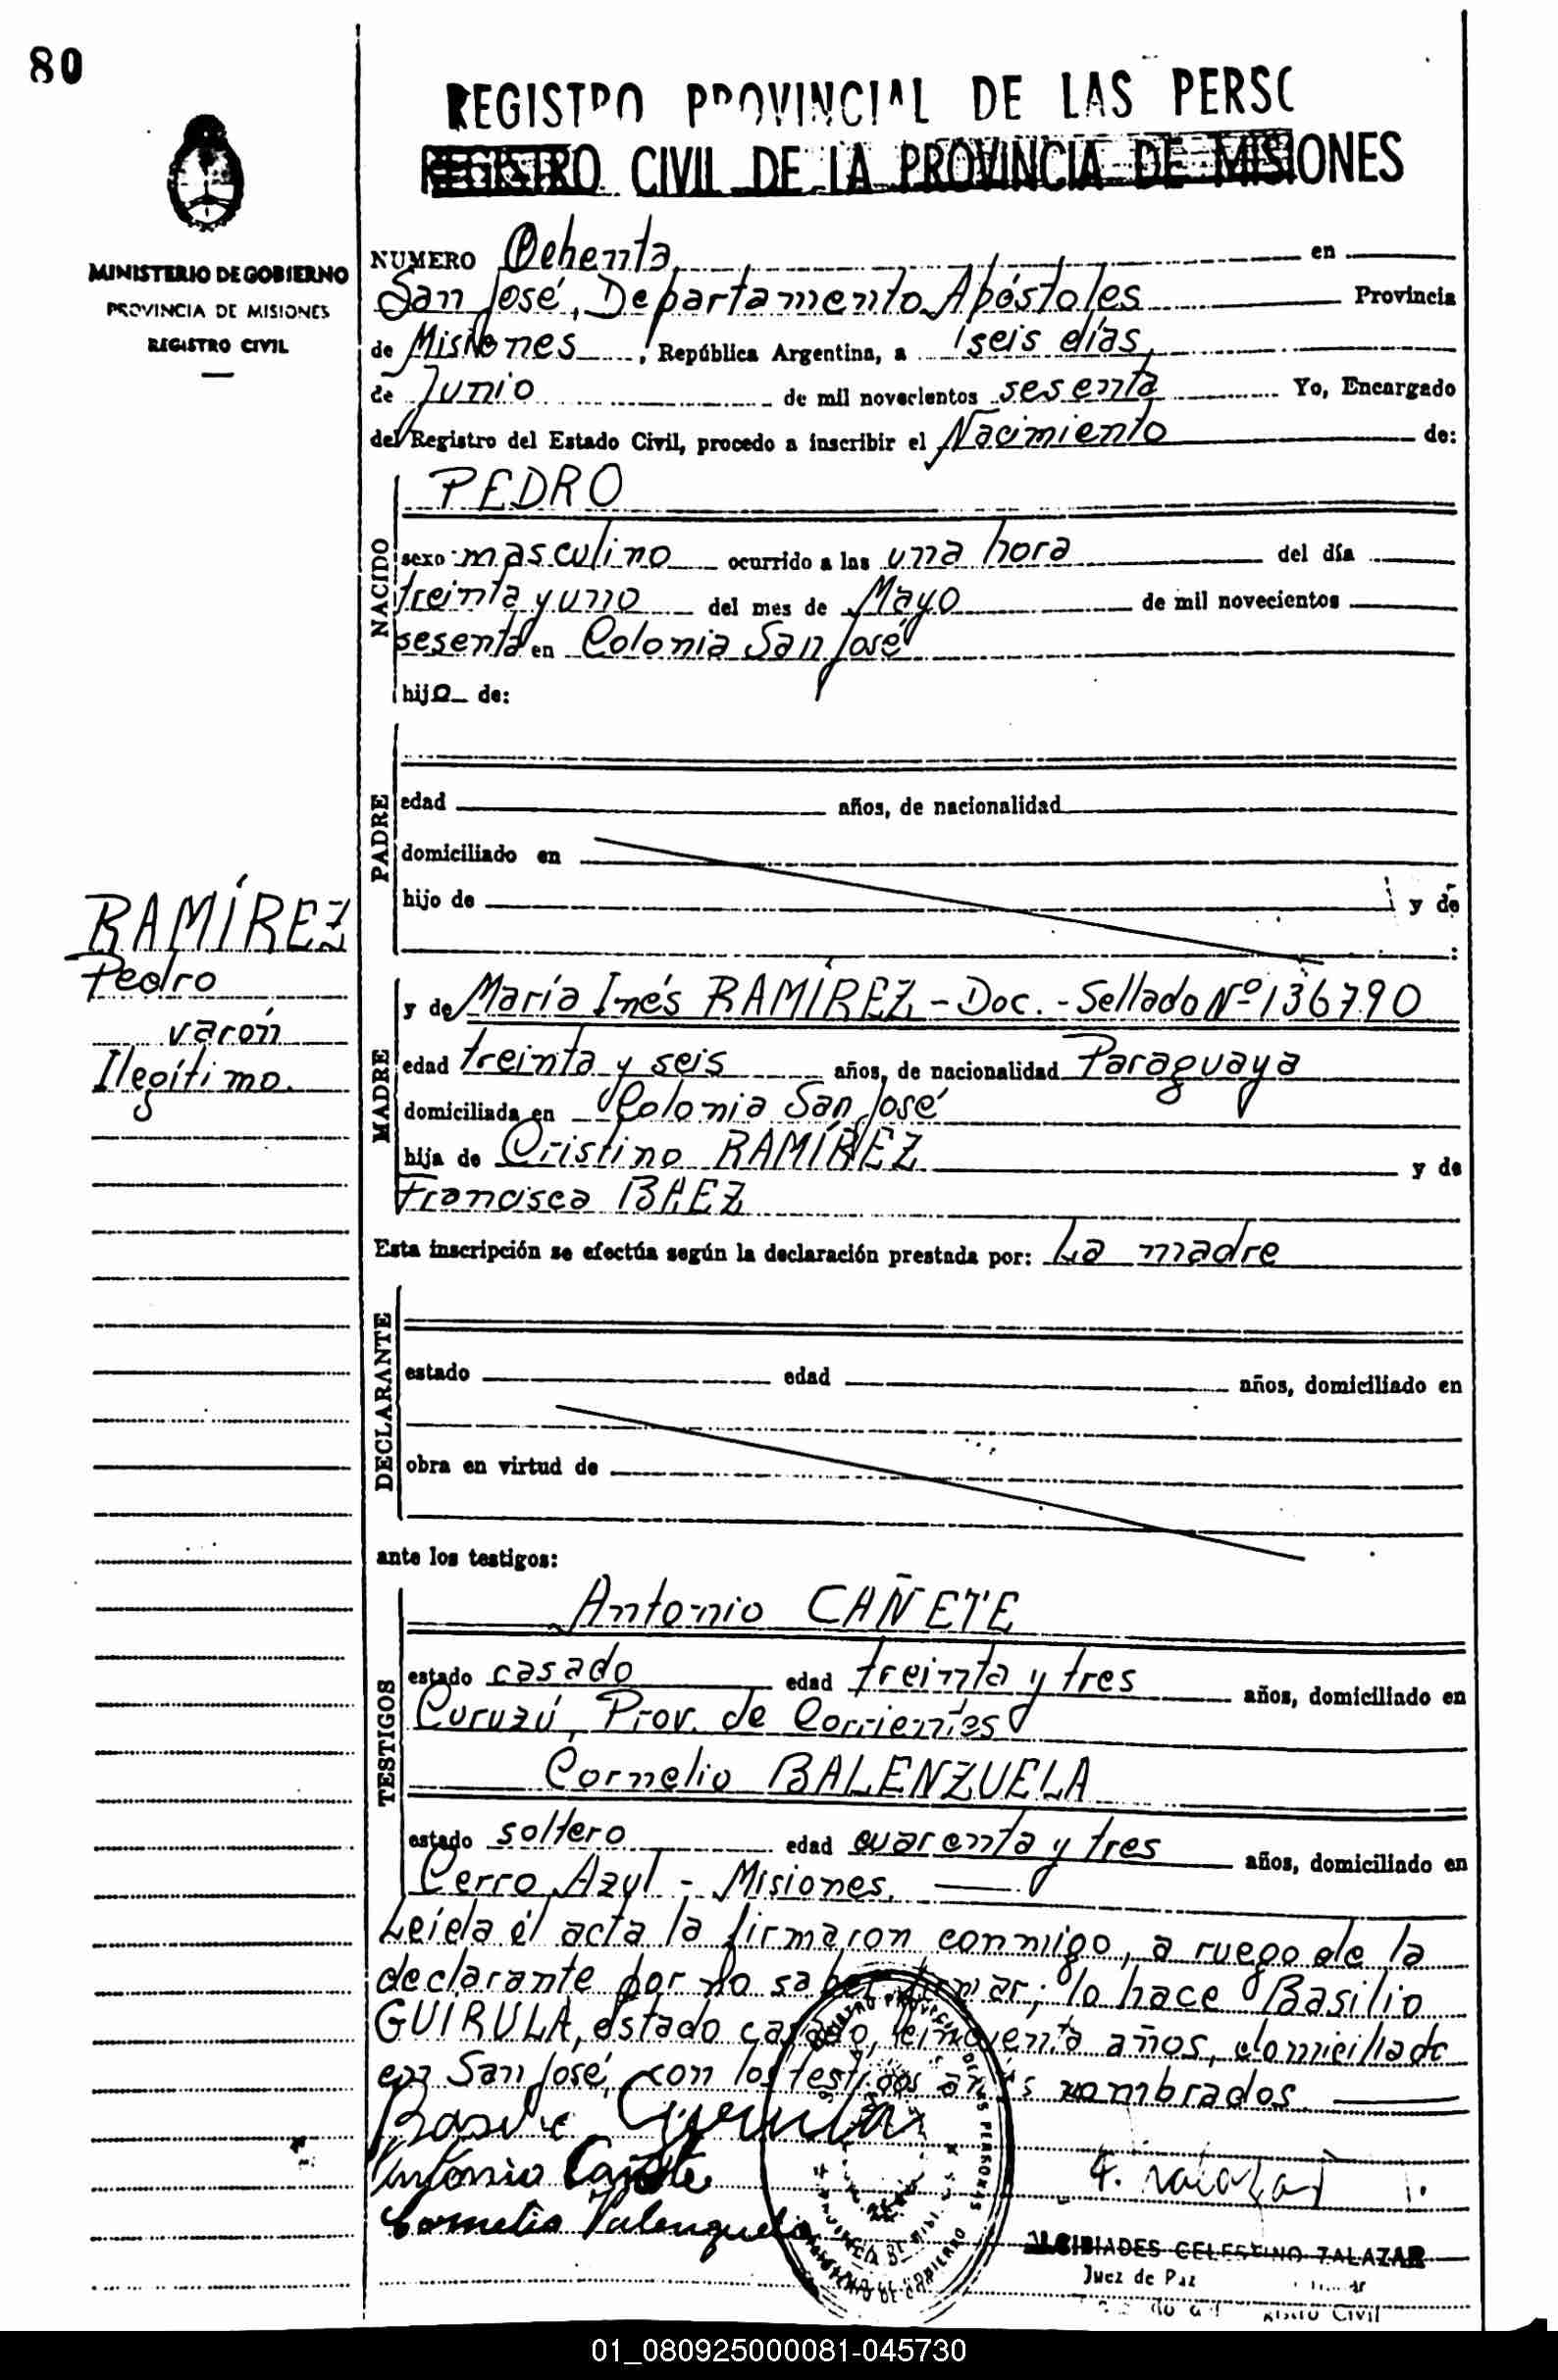 80
REGISTRO PROVINCIAL DE LAS PERSO
REGISTRO CIVIL DE LA PROVINCIA DE MISIONES
MINISTERIO DE GOBIERNO
PROVINCIA DE MISIONES
REGISTRO CIVIL
NUMERO Ochenta en
San José, Departamento Apóstoles Provincia
de Misiones, República Argentina, a seis días
de Junio de mil novecientos sesenta Yo, Encargado
del Registro del Estado Civil, procedo a inscribir el Nacimiento de:
NACIDO
PEDRO
sexo masculino ocurrido a las una hora del día
treinta y uno del mes de Mayo de mil novecientos
sesenta en Colonia San José
hijo de:
PADRE
edad años, de nacionalidad
domiciliado en
hijo de y de
:
RAMÍREZ
Pedro
varón
Ilegítimo.
MADRE
y de María Inés RAMÍREZ - Doc. - Sellado Nº 136790
edad treinta y seis años, de nacionalidad Paraguaya
domiciliada en Colonia San José
hija de Cristino RAMÍREZ y de
Francisca BAEZ
Esta inscripción se efectúa según la declaración prestada por: La madre
DECLARANTE
estado edad años, domiciliado en
obra en virtud de
ante los testigos:
TESTIGOS
Antonio CAÑETE
estado casado edad treinta y tres años, domiciliado en
Curuzú, Prov. de Corrientes
Cornelio BALENZUELA
estado soltero edad cuarenta y tres años, domiciliado en
Cerro Azul - Misiones.
Leída el acta la firmaron conmigo, a ruego de la
declarante por no saber firmar; lo hace Basilio
GUIRULA, estado casado, cincuenta años, domiciliado
en San José, con los testigos antes nombrados.
Antonio Cañete
Cornelio Valenzuela
ALCIBIADES CELESTINO ZALAZAR
Juez de Paz
Civil
01_080925000081-045730